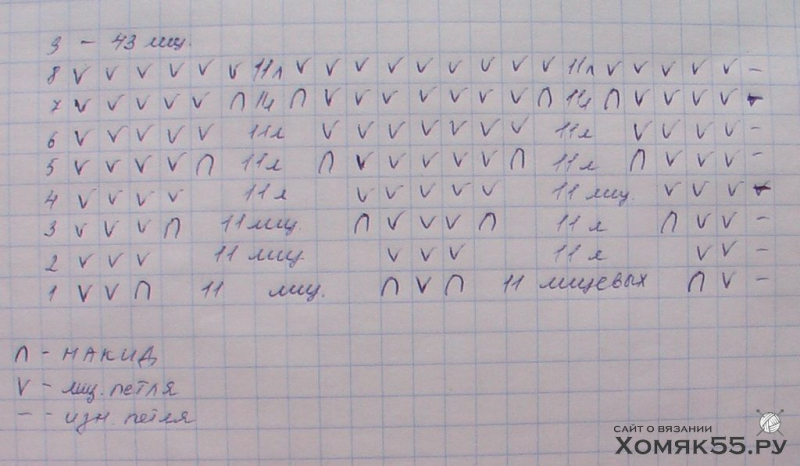 9 - 43 лиц.
8 V V V V V V 11л V V V V V V V V V 11л V V V V V -
7 V V V V V ∩ 11л ∩ V V V V V V V ∩ 11л ∩ V V V V -
6 V V V V V 11л V V V V V V V 11л V V V V -
5 V V V V ∩ 11л ∩ V V V V V ∩ 11л ∩ V V V -
4 V V V V 11л V V V V V 11 лиц. V V V -
3 V V V ∩ 11 лиц. ∩ V V V ∩ 11л ∩ V V -
2 V V V 11 лиц V V V 11л V V -
1 V V ∩ 11 лиц. ∩ V ∩ 11 лицевых ∩ V -
∩ - НАКИД
V - лиц. петля
- - изн. петля
САЙТ О ВЯЗАНИИ
Хомяк55.РУ